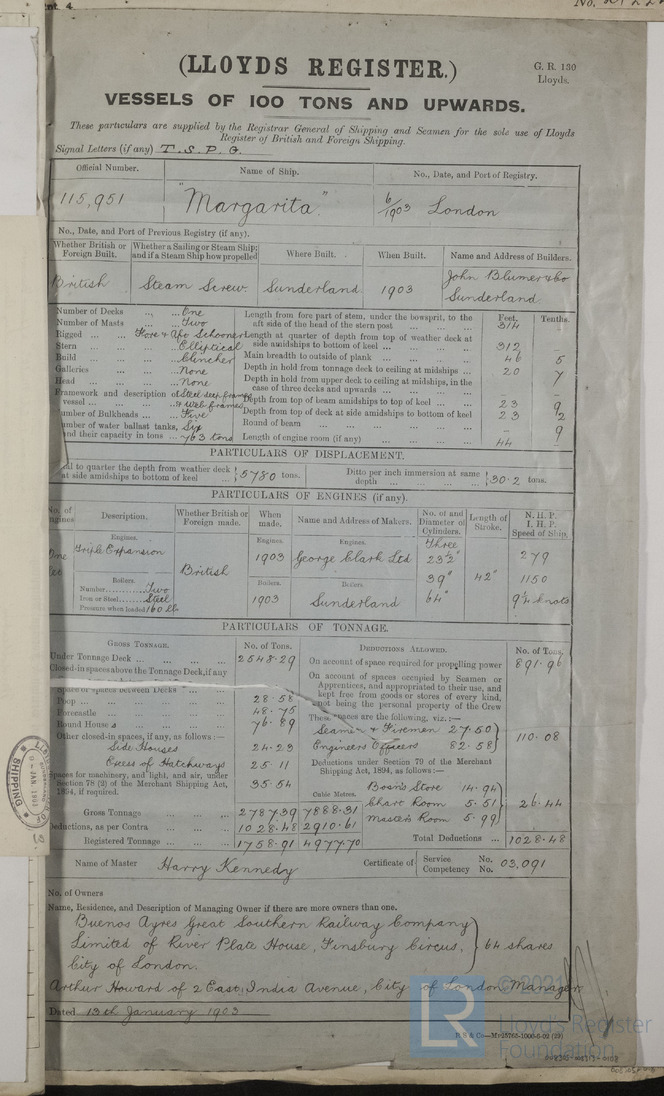 (LLOYDS REGISTER.)
G. R. 130
Lloyds.
VESSELS OF 100 TONS AND UPWARDS.
These particulars are supplied by the Registrar General of Shipping and Seamen for the sole use of Lloyds
Register of British and Foreign Shipping.
Signal Letters (if any) T. S. P. G.
Official Number. Name of Ship. No., Date, and Port of Registry.
115,951 "Margarita" 6/1903 London
No., Date, and Port of Previous Registry (if any).
Whether British or Foreign Built. Whether a Sailing or Steam Ship; and if a Steam Ship how propelled Where Built. When Built. Name and Address of Builders.
British Steam Screw. Sunderland 1903 John Blumer & Co Sunderland
Number of Decks ... One
Number of Masts ... Two
Rigged ... Fore & Aft Schooner
Stern ... Elliptical
Build ... Clincher
Galleries ... None
Head ... None
Framework and description of vessel ... Steel deep frames & Web frames
Number of Bulkheads ... Five
Number of water ballast tanks, Six
and their capacity in tons ... 763 tons
Feet. Tenths.
Length from fore part of stem, under the bowsprit, to the aft side of the head of the stern post ... 314
Length at quarter of depth from top of weather deck at side amidships to bottom of keel ... 312
Main breadth to outside of plank ... 46 5
Depth in hold from tonnage deck to ceiling at midships ... 20 7
Depth in hold from upper deck to ceiling at midships, in the case of three decks and upwards ...
Depth from top of beam amidships to top of keel ... 23 9
Depth from top of deck at side amidships to bottom of keel 23 2
Round of beam ... 9
Length of engine room (if any) ... 44
PARTICULARS OF DISPLACEMENT.
to quarter the depth from weather deck at side amidships to bottom of keel ... 5780 tons. Ditto per inch immersion at same depth ... 30.2 tons.
PARTICULARS OF ENGINES (if any).
No. of Engines Description. Whether British or Foreign made. When made. Name and Address of Makers. No. of and Diameter of Cylinders. Length of Stroke. N. H. P. I. H. P. Speed of Ship.
Engines. Engines. Engines. Three
One Triple Expansion British 1903 George Clark Ltd 23½" 279
39" 42" 1150
Boilers. Boilers. Boilers.
Number ... Two
Iron or Steel ... Steel 1903 Sunderland 64" 9¼ knots
Pressure when loaded 160 lb
PARTICULARS OF TONNAGE.
GROSS TONNAGE. No. of Tons.
Under Tonnage Deck ... 2548.29
Closed-in spaces above the Tonnage Deck, if any
Space or spaces between Decks
Poop ... 28.58
Forecastle ... 48.75
Round House s ... 76.89
Other closed-in spaces, if any, as follows:—
Side Houses 24.23
Excess of Hatchways 25.11
Spaces for machinery, and light, and air, under Section 78 (2) of the Merchant Shipping Act, 1894, if required. 35.54
Cubic Metres.
Gross Tonnage ... 2787.39 7888.31
Deductions, as per Contra ... 1028.48 2910.61
Registered Tonnage ... 1758.91 4977.70
DEDUCTIONS ALLOWED. No. of Tons.
On account of space required for propelling power 891.96
On account of spaces occupied by Seamen or Apprentices, and appropriated to their use, and kept free from goods or stores of every kind, not being the personal property of the Crew
These spaces are the following, viz.:—
Seamen & Firemen 27.50
Engineers Officers 82.58 110.08
Deductions under Section 79 of the Merchant Shipping Act, 1894, as follows:—
Bosn's Store 14.94
Chart Room 5.51 26.44
Master's Room 5.99
Total Deductions ... 1028.48
Name of Master Harry Kennedy Certificate of Service No. Competency No. 03,091
No. of Owners
Name, Residence, and Description of Managing Owner if there are more owners than one.
Buenos Ayres Great Southern Railway Company
Limited of River Plate House, Finsbury Circus, 64 shares
City of London.
Arthur Howard of 2 East India Avenue, City of London Manager
Dated 13th January 1903
© 2021
LR
Lloyd's Register
Foundation